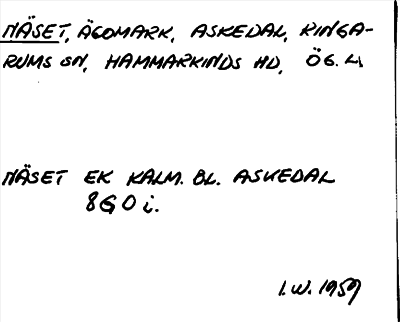 NÄSET, ÄGOMARK, ASKEDAL, RINGA-
RUMS SN, HAMMARKINDS HD, ÖG. L
NÄSET EK KALM. BL. ASKEDAL
8G0i.
I.W. 1959